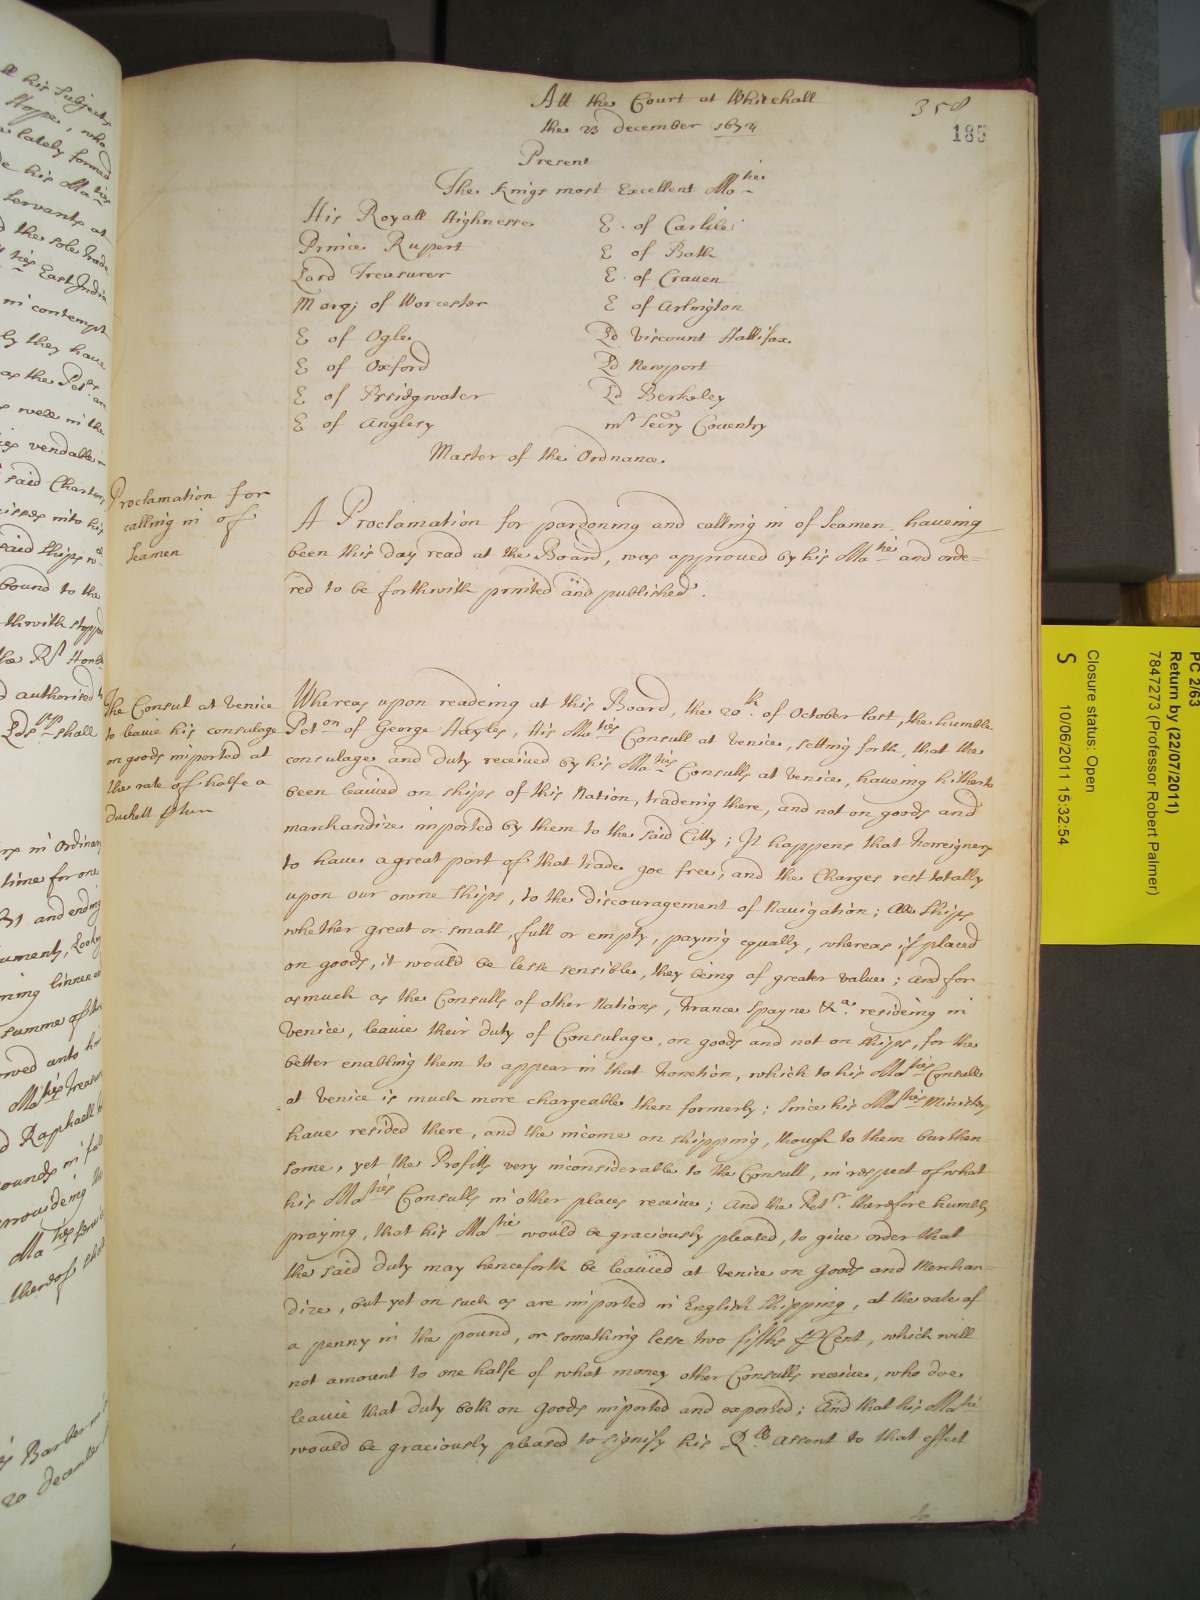 Att the Court at Whitehall
358
the 23 december 1672
185
Present
The Kings most Excellent Ma^tie
His Royall Highnesse
Prince Rupert
Lord Treasurer
Marq; of Worcester
E of Ogle
E of Oxford
E of Bridgwater
E of Anglesy
E. of Carlile
E of Bath
E. of Crauen
E of Arlington
Ld Viscount Hallifax
Ld Newport
Ld Berkeley
m^r Secry Coventry
Master of the Ordnance.
Proclamation for
calling in of
Seamen
A Proclamation for pardoning and calling in of Seamen haueing
been this day read at the Board, was approved by his Ma^tie and orde=
red to be forthwith printed and published.
The Consul at Venice
to leauie his consulage
on goods imported at
the rate of halfe a
duckett
Whereas upon readeing at this Board, the 20^th. of October last, the humble
Pet^on of George Hayles, His Ma^ties Consull at Venice, setting forth, that the
consulage and duty received by his Ma^ties Consulls at Venice, haueing hitherto
been leauied on ships of this Nation, tradeing there, and not on goods and
marchandize imported by them to the said Citty; It happens that Forreigners
to haue a great part of that trade goe free, and the Charges rest totally
upon our owne Ships, to the discouragement of Nauigation; All Ships
whether great or small, full or empty, paying equally, whereas if placed
on goods, it would be lesse sensible, they being of greater value; and for
asmuch as the Consulls of other Nations, France Spayne &^a. resideing in
Venice, leauie their duty of Consulage, on goods and not on ships, for the
better enabling them to appear in that Fonction, which to his Ma^ties Consull
at Venice is much more chargeable then formerly; Since his Ma^ties Ministers
haue resided there, and the income on shipping, though to them burthen
some, yet the Profitts very inconsiderable to the Consull, in respect of what
his Ma^ties Consulls in other places receiue; And the Pet^r. therefore humbly
praying, that his Ma^tie would be graciously pleased, to giue order that
the said duty may henceforth be leauied at Venice on goods and Merchan
dize, but yet on such as are imported in English Shipping, at the rate of
a penny in the pound, or something lesse two fifths ⅌ Cent, which will
not amount to one halfe of what money other Consulls receiue, who doe
leauie that duty both on goods imported and exported; And that his Ma^tie
would be graciously pleased to signify his R^ll assent to that effect
PC 2/63
Return by (22/07/2011)
7847273 (Professor Robert Palmer)
Closure status: Open
10/06/2011 15:32:54
S